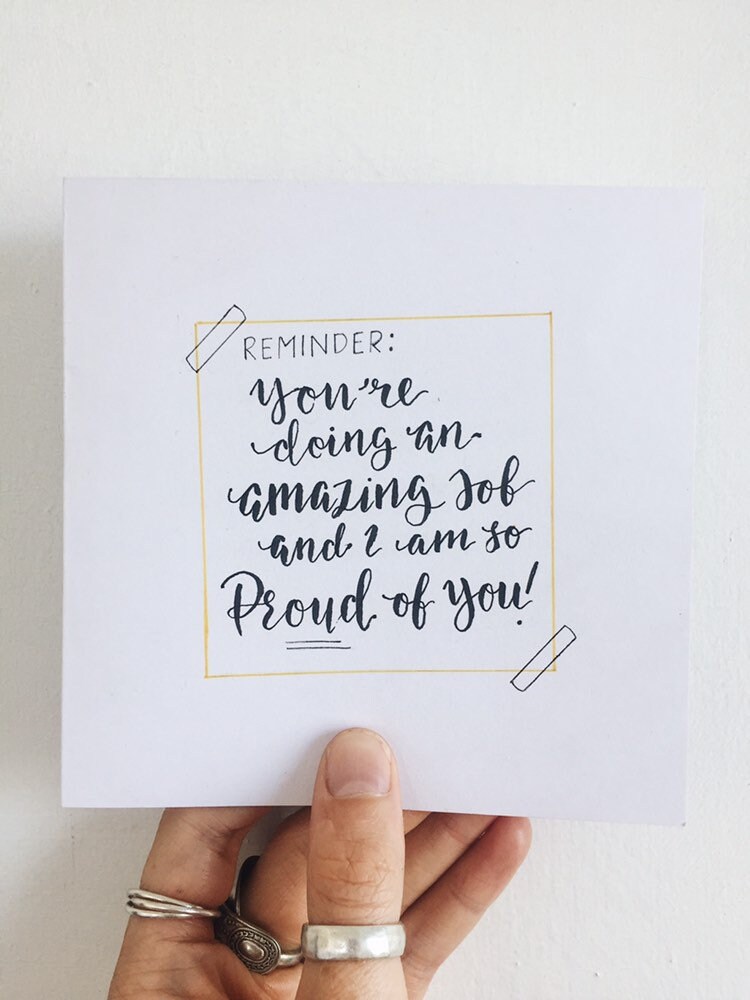 REMINDER:
You're
doing an
amazing Job
and I am so
Proud of you!